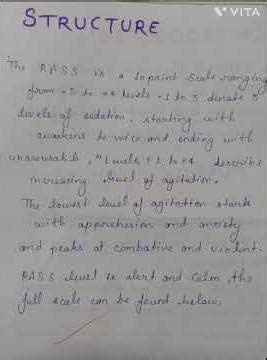 VITA
STRUCTURE
The RASS is a 10 point scale ranging
from -5 to +4 levels -1 to 5 denote 5
levels of sedation, starting with
awakens to voice and ending with
unarousable." Levels +1 to +4 describe
increasing level of agitation.
The lowest level of agitation starts
with apprehension and anxiety
and peaks at combative and violent.
RASS level is alert and calm, the
full scale can be found below.